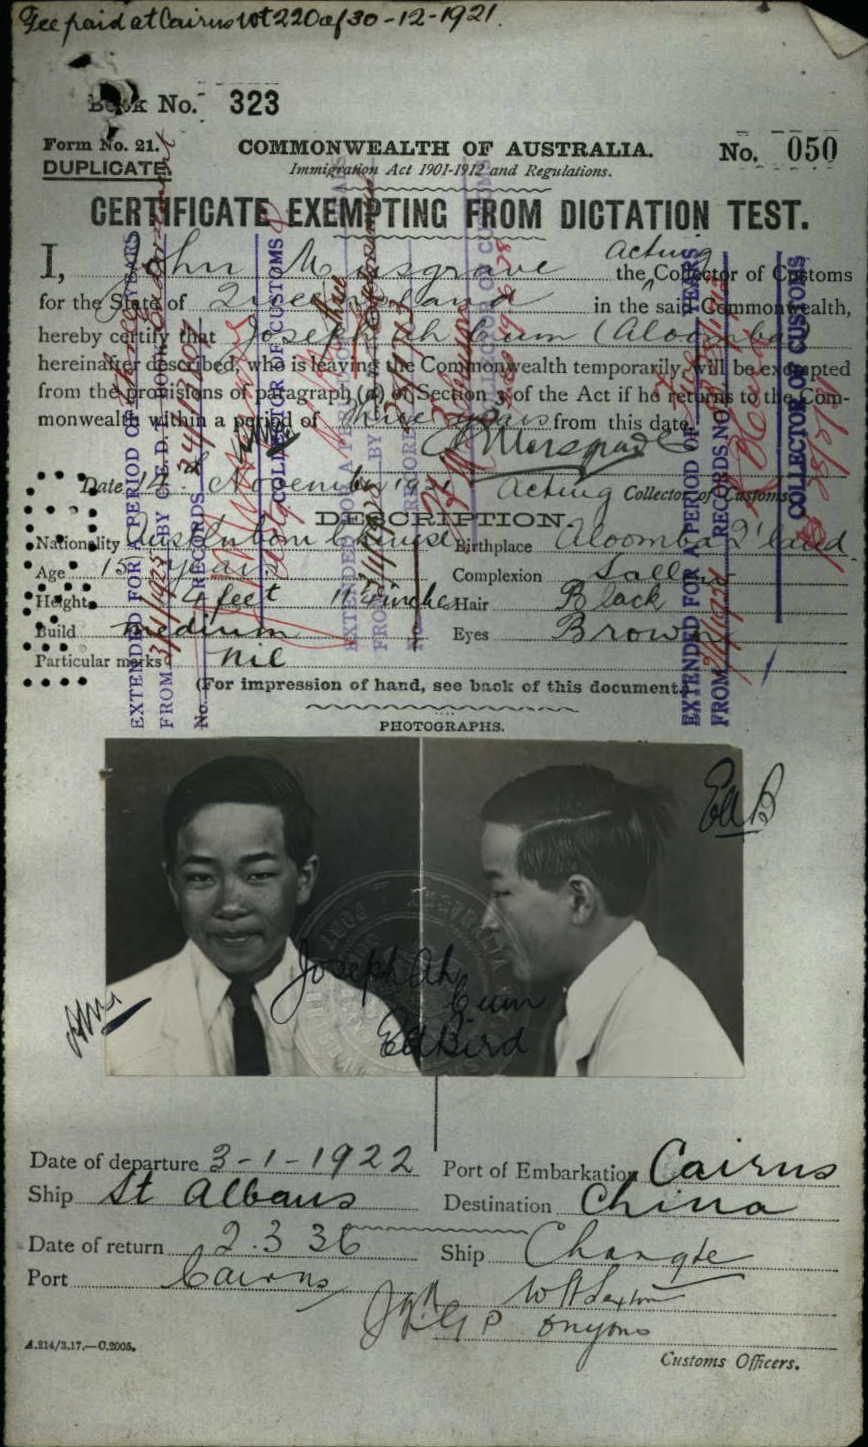 Fee paid at Cairns 30-12-1921.
Book No. 323
Form No. 21.
COMMONWEALTH OF AUSTRALIA.
No. 050
DUPLICATE.
Immigration Act 1901-1912 and Regulations.
CERTIFICATE EXEMPTING FROM DICTATION TEST.
acting
I, John Musgrave the Collector of Customs
for the State of Queensland in the said Commonwealth,
hereby certify that Joseph Ah Cum (Aloomba)
hereinafter described, who is leaving the Commonwealth temporarily, will be exempted
from the provisions of paragraph (a) of Section 3 of the Act if he returns to the Com-
monwealth within a period of three years from this date.
J Musgrave
Date 14. November 1921 Acting Collector of Customs.
DESCRIPTION.
Nationality Aust. born Chinese Birthplace Aloomba Q'land.
Age 15 years Complexion Sallow
Height 4 feet inches Hair Black
Build medium Eyes Brown
Particular marks nil
(For impression of hand, see back of this document.)
EXTENDED FOR A PERIOD OF YEARS
FROM 3/1/1925 BY C. & E. D.
No. RECORDS
COLLECTOR OF CUSTOMS
EXTENDED FOR A PERIOD
FROM BY
No. RECORDS
COLLECTOR OF CUSTOMS
EXTENDED FOR A PERIOD OF YEARS
FROM RECORDS No.
COLLECTOR OF CUSTOMS
PHOTOGRAPHS.
EdB
Joseph Ah
Cum
Ed Bird
Date of departure 3-1-1922 Port of Embarkation Cairns
Ship St Albans Destination China
Date of return 2.3.36 Ship Changte
Port Cairns
Customs Officers.
A.214/3.17.—C.2005.